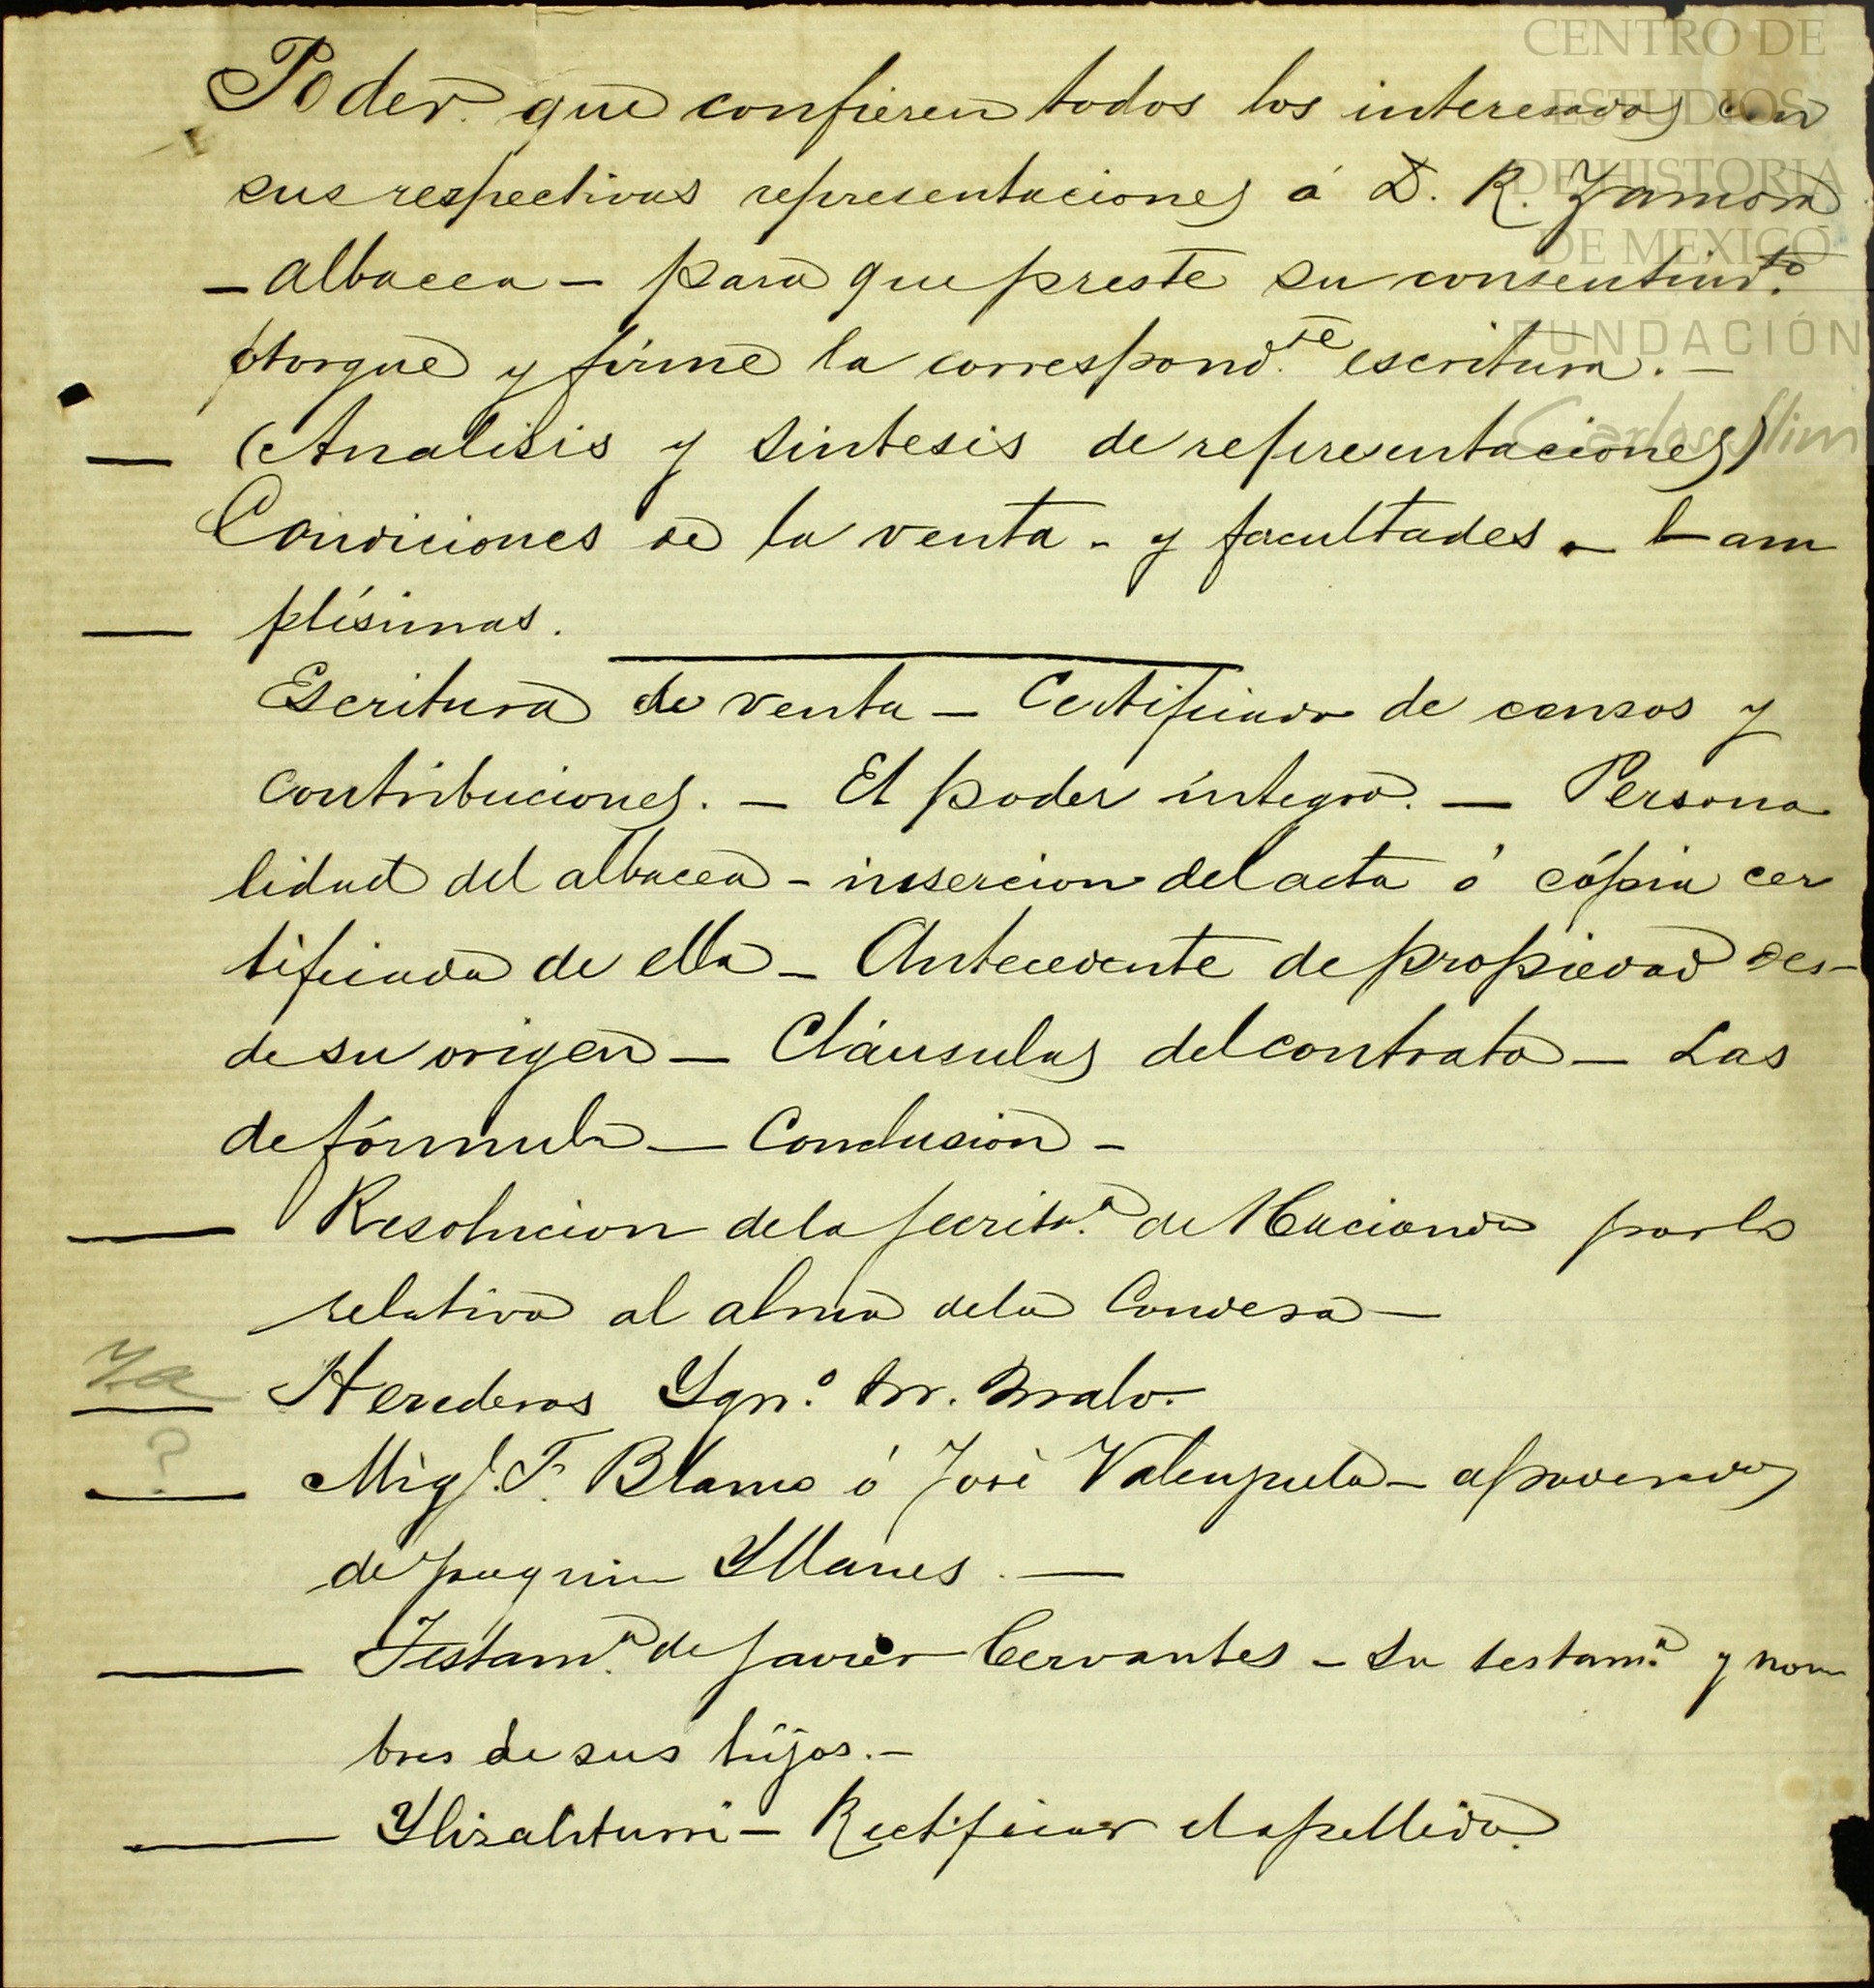 Poder que confieren todos los interesados con
sus respectivas representaciones á D. R. Zamora
- albacea - para que preste su consentimto.
otorgue y firme la correspond.te escritura. -
- (Analisis y Sintesis de representaciones)
Condiciones de la venta - y facultades - am
- plísimas.
Escritura de venta - Certificado de censos y
contribuciones. - El poder íntegro. - Persona
lidad del albacea - insercion del acta ó cópia cer
tificada de ella - Antecedente de propiedad des-
de su origen - Cláusulas del contrato - Las
de fórmula - Conclusion -
- Resolucion de la Secrita.a de Hacienda por lo
relativo al alma de la Condesa -
Ya - Herederos Ygn.o M. Malo.
? - Migl. F. Blanco ó José Valenzuela - apoderados
de Joaquin Yllanes. -
- Testam.a de Javier Cervantes - Su testam.o y nom
bres de sus hijos. -
- Ylizaliturri - Rectificar el apellido.
CENTRO DE
ESTUDIOS
DE HISTORIA
DE MEXICO
FUNDACIÓN
Carlos Slim